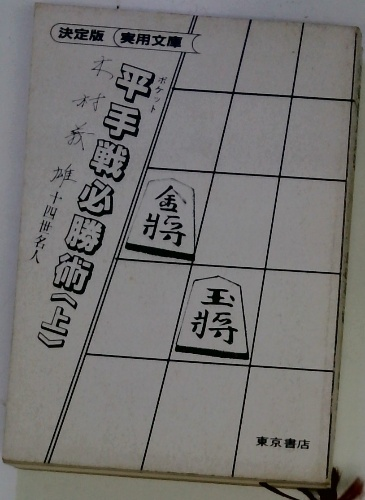 決定版 実用文庫
ポケット
平手戦必勝術〈上〉
木村義雄十四世名人
金將
玉將
東京書店